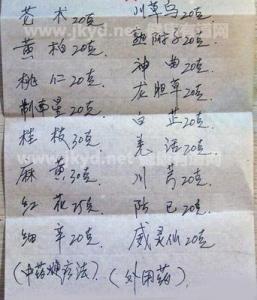 苍术20克 川草乌20克.
黄柏20克. 熟附子20克.
桃仁20克. 神曲20克.
制南星20克. 龙胆草20克.
桂枝30克. 白芷20克.
麻黄30克. 羌活20克.
红花25克 川芎20克.
细辛20克 防己20克.
威灵仙20克
(中药熥疗法). (外用药).
www.jkyd.net
www.jkyd.net
www.jkyd.net